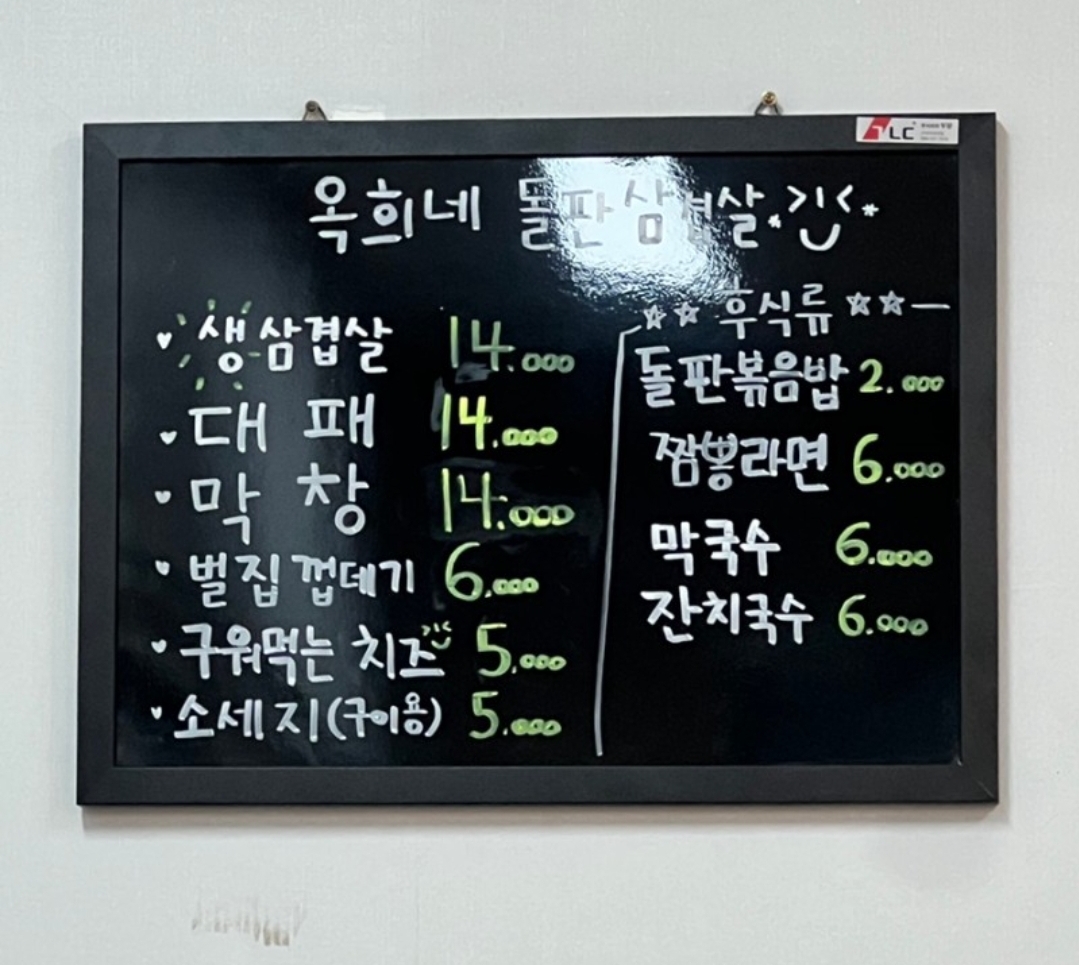 TLC
옥희네 돌판삼겹살
생삼겹살 14.000
대패 14.000
막창 14.000
벌집껍데기 6.000
구워먹는 치즈 5.000
소세지(구이용) 5.000
☆☆ 후식류 ☆☆
돌판볶음밥 2.000
짬뽕라면 6.000
막국수 6.000
잔치국수 6.000